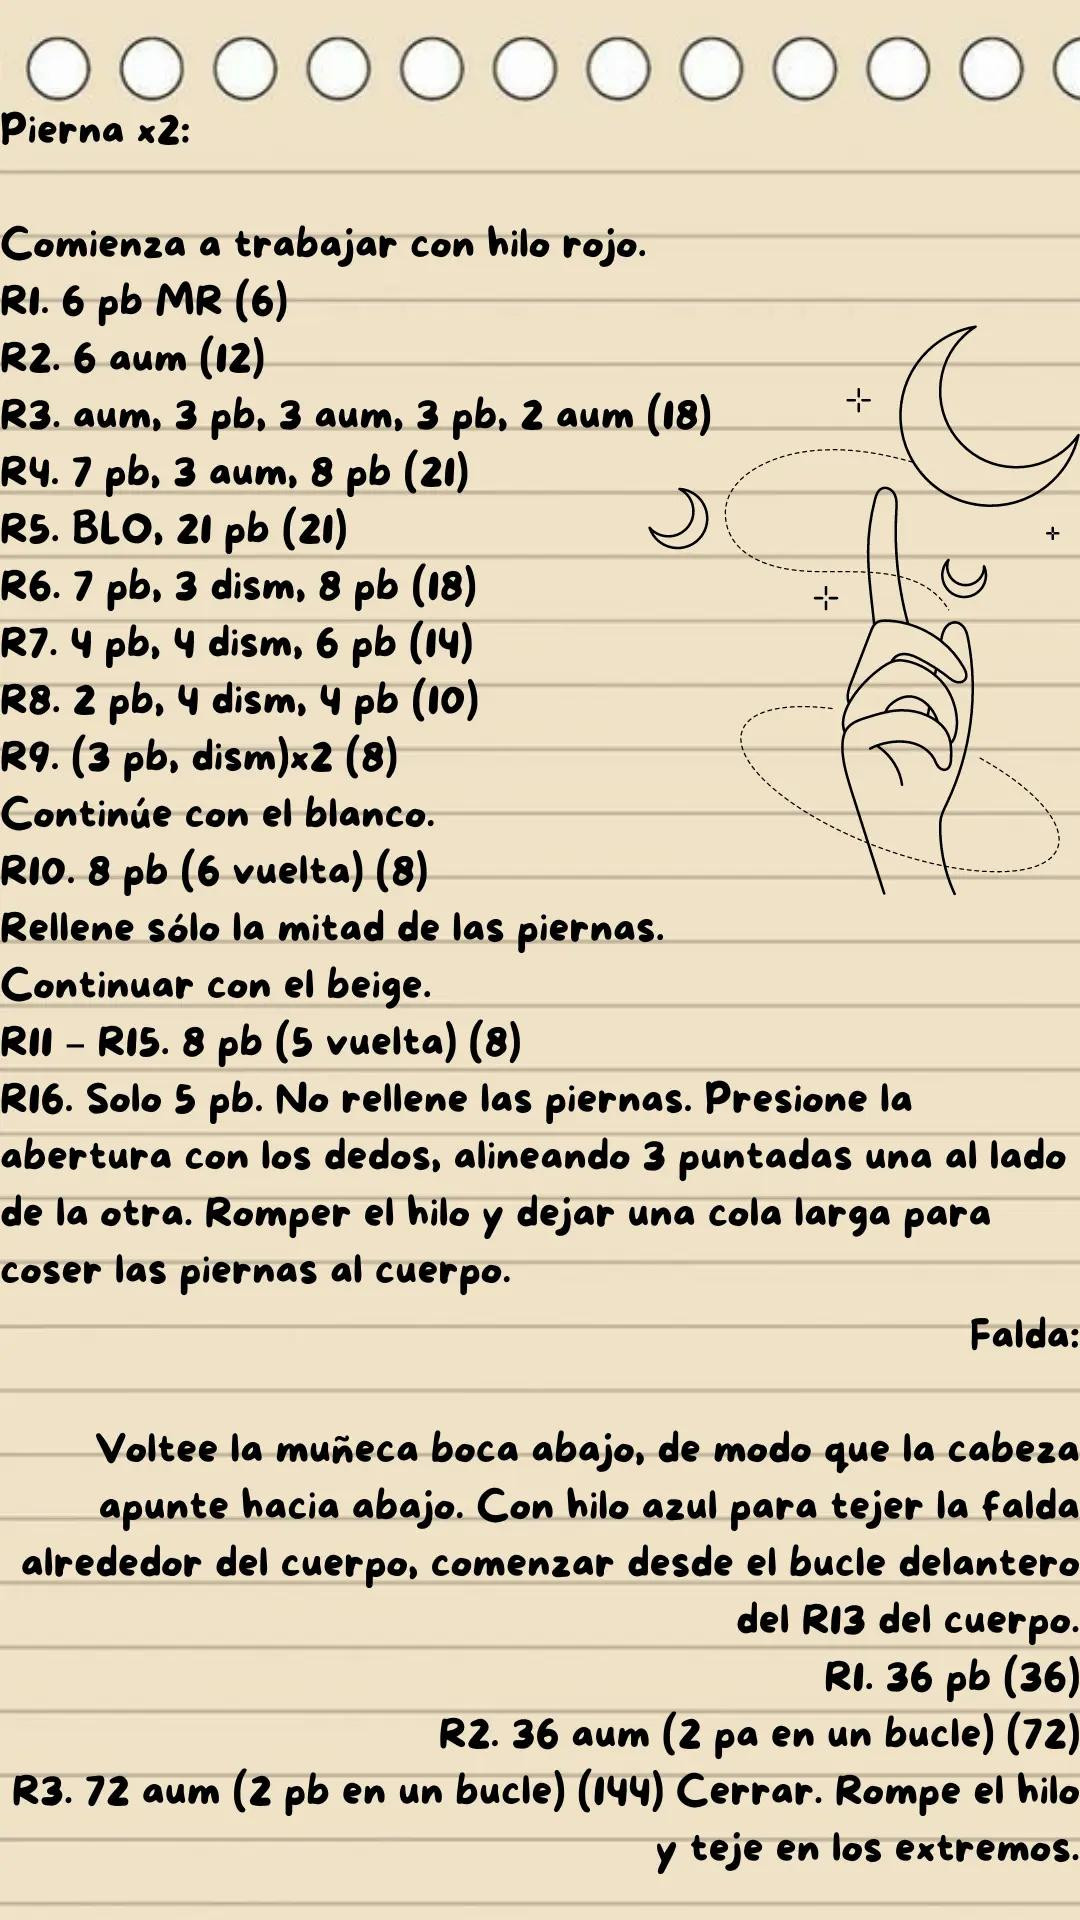 Pierna x2:
Comienza a trabajar con hilo rojo.
R1. 6 pb MR (6)
R2. 6 aum (12)
R3. aum, 3 pb, 3 aum, 3 pb, 2 aum (18)
R4. 7 pb, 3 aum, 8 pb (21)
R5. BLO, 21 pb (21)
R6. 7 pb, 3 dism, 8 pb (18)
R7. 4 pb, 4 dism, 6 pb (14)
R8. 2 pb, 4 dism, 4 pb (10)
R9. (3 pb, dism)x2 (8)
Continúe con el blanco.
R10. 8 pb (6 vuelta) (8)
Rellene sólo la mitad de las piernas.
Continuar con el beige.
R11 – R15. 8 pb (5 vuelta) (8)
R16. Solo 5 pb. No rellene las piernas. Presione la
abertura con los dedos, alineando 3 puntadas una al lado
de la otra. Romper el hilo y dejar una cola larga para
coser las piernas al cuerpo.
Falda:
Voltee la muñeca boca abajo, de modo que la cabeza
apunte hacia abajo. Con hilo azul para tejer la falda
alrededor del cuerpo, comenzar desde el bucle delantero
del R13 del cuerpo.
R1. 36 pb (36)
R2. 36 aum (2 pa en un bucle) (72)
R3. 72 aum (2 pb en un bucle) (144) Cerrar. Rompe el hilo
y teje en los extremos.